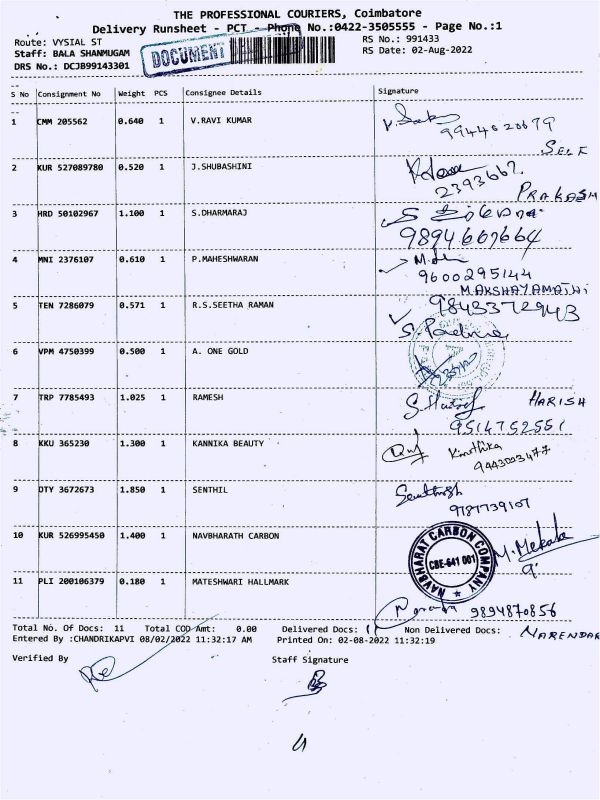 THE PROFESSIONAL COURIERS, Coimbatore
Delivery Runsheet - PCT - Phone No.:0422-3505555 - Page No.:1
Route: VYSIAL ST
RS No.: 991433
Staff: BALA SHANMUGAM
DOCUMENT
RS Date: 02-Aug-2022
DRS No.: DCJB99143301
S No Consignment No Weight PCS Consignee Details Signature
1 CMM 205562 0.640 1 V.RAVI KUMAR
9944020679
SELF
2 KUR 527089780 0.520 1 J.SHUBASHINI
2393662
PRAKASH
3 HRD 50102967 1.100 1 S.DHARMARAJ
9894607664
4 MNI 2376107 0.610 1 P.MAHESHWARAN
9600295144
M.AKSHAYAMATHI
5 TEN 7286079 0.571 1 R.S.SEETHA RAMAN 9843372943
6 VPM 4750399 0.500 1 A. ONE GOLD
7 TRP 7785493 1.025 1 RAMESH HARISH
9514752551
8 KKU 365230 1.300 1 KANNIKA BEAUTY Kiruthika
9443003477
9 DTY 3672673 1.850 1 SENTHIL
9787739107
10 KUR 526995450 1.400 1 NAVBHARATH CARBON
NAVBHARAT CARBON COMPANY
CBE-641 001
M. Mekala
11 PLI 200106379 0.180 1 MATESHWARI HALLMARK
9894870856
Total No. Of Docs: 11 Total COD Amt: 0.00 Delivered Docs: 11 Non Delivered Docs:
NARENDAR
Entered By :CHANDRIKAPVI 08/02/2022 11:32:17 AM Printed On: 02-08-2022 11:32:19
Verified By Staff Signature